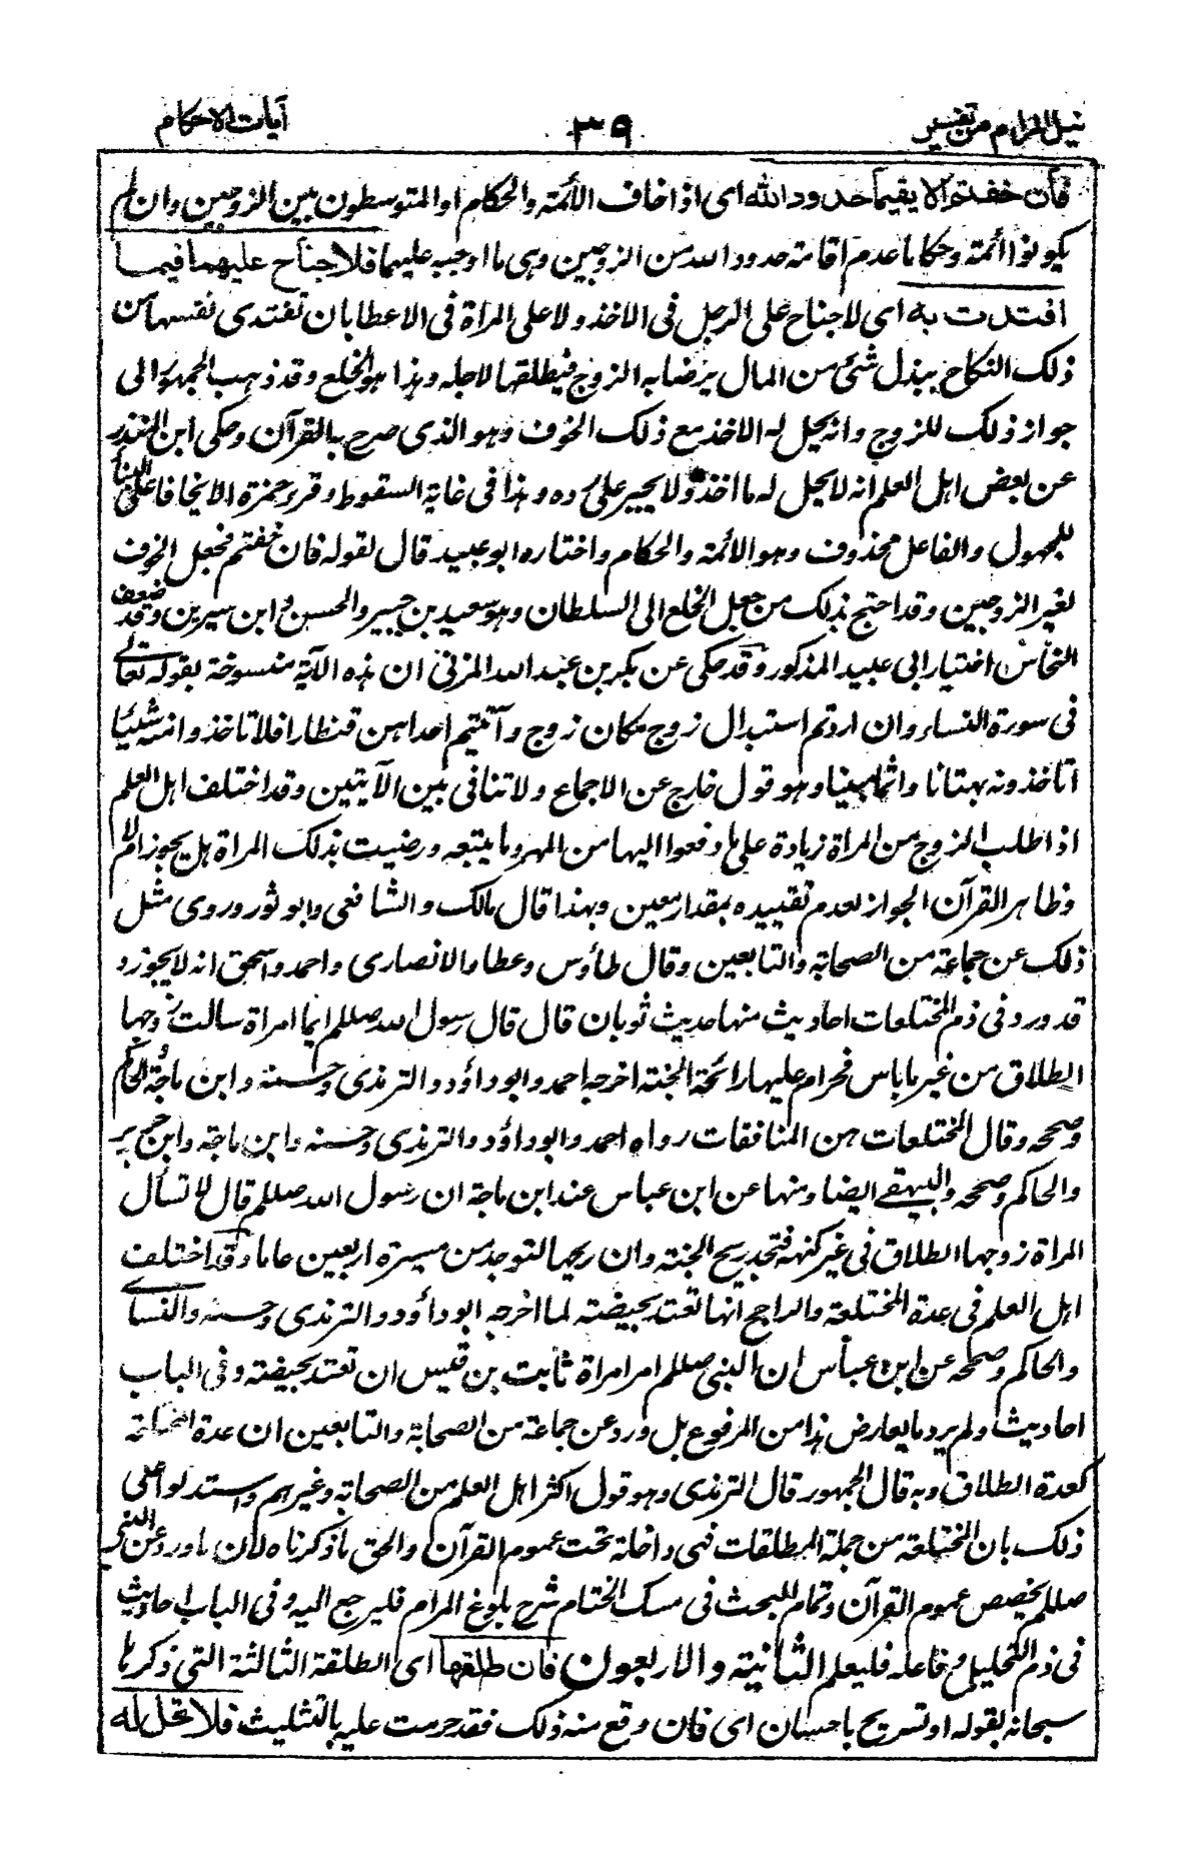 نيل المرام من تفسير
٣٩
آيات الاحكام
فان خفتم الا يقيما حدود الله اى اذا خاف الائمة والحكام او المتوسطون بين الزوجين وان لم
يكونوا ائمة وحكاما عدم اقامة حدود الله من الزوجين وهى ما اوجبه عليهما فلا جناح عليهما فيما
افتدت به اى لا جناح على الرجل فى الاخذ ولا على المرأة فى الاعطا بان تفتدى نفسها من
ذلك النكاح ببذل شئ من المال يرضا به الزوج فيطلقها لاجله وهذا هو الخلع وقد ذهب الجمهور الى
جواز ذلك للزوج وانه يحل له الاخذ مع ذلك الخوف وهو الذى صرح به القرآن وحكى ابن المنذر
عن بعض اهل العلم انه لا يحل له ما اخذ ولا يجبر على رده وهذا فى غاية السقوط وقرء حمزة الا يخافا على البنأ
للمجهول والفاعل محذوف وهو الائمة والحكام واختاره ابو عبيد قال لقوله فان خفتم فجعل الخوف
لغير الزوجين وقد احتج بذلك من جعل الخلع الى السلطان وهو سعيد بن جبير والحسن و ابن سيرين وقد ضعف
النحاس اختيار ابى عبيد المذكور وقد حكى عن بكر بن عبد الله المزنى ان هذه الآية منسوخة بقوله تعالى
فى سورة النساء وان اردتم استبدال زوج مكان زوج وآتيتم احداهن قنطارا فلا تاخذوا منه شيئا
اتاخذونه بهتانا واثما مبينا وهو قول خارج عن الاجماع ولا تنافى بين الآيتين وقد اختلف اهل العلم
اذا طلب الزوج من المرأة زيادة على ما دفعوا اليها من المهر وما يتبعه ورضيت بذلك المرأة هل يجوز ام لا
وظاهر القرآن الجواز لعدم تقييده بمقدار معين وبهذا قال مالك والشافعى وابو ثور وروى مثل
ذلك عن جماعة من الصحابة والتابعين وقال طاؤس وعطا والانصارى واحمد واسحق انه لا يجوز و
قد ورد فى ذم المختلعات احاديث منها حديث ثوبان قال قال رسول الله صللم ايما امرأة سالت زوجها
الطلاق من غير ما باس فحرام عليها رائحة الجنة اخرجه احمد وابو داؤد والترمذى وحسنه وابن ماجة والحاكم
وصححه وقال المختلعات هن المنافقات رواه احمد وابو داؤد والترمذى وحسنه وابن ماجة وابن جرير
والحاكم وصححه والبيهقى ايضا ومنها عن ابن عباس عند ابن ماجة ان رسول الله صللم قال لا تسأل
المرأة زوجها الطلاق فى غير كنهه فتجد ريح الجنة وان ريحها لتوجد من مسيرة اربعين عاما وقد اختلف
اهل العلم فى عدة المختلعة والراجح انها تعتد بحيضة لما اخرجه ابو داؤد والترمذى وحسنه والنسائى
والحاكم وصححه عن ابن عباس ان النبى صللم امر امرأة ثابت بن قيس ان تعتد بحيضة وفى الباب
احاديث ولم يرد ما يعارض هذا من المرفوع بل ورد عن جماعة من الصحابة والتابعين ان عدة المختلعة
كعدة الطلاق وبه قال الجمهور قال الترمذى وهو قول اكثر اهل العلم من الصحابة وغيرهم واستدلوا على
ذلك بان المختلعة من جملة المطلقات فهى داخلة تحت عموم القرآن والحق ما ذكرناه لان ما ورد عن النبى
صللم يخصص عموم القرآن وتمام البحث فى مسك الختام شرح بلوغ المرام فليرجع اليه وفى الباب احاديث
فى ذم التحليل وفاعله فليعلم الثانية والاربعون فان طلقها اى الطلقة الثالثة التى ذكرها
سبحانه بقوله او تسريح باحسان اى فان وقع منه ذلك فقد حرمت عليه بالتثليث فلا تحل له